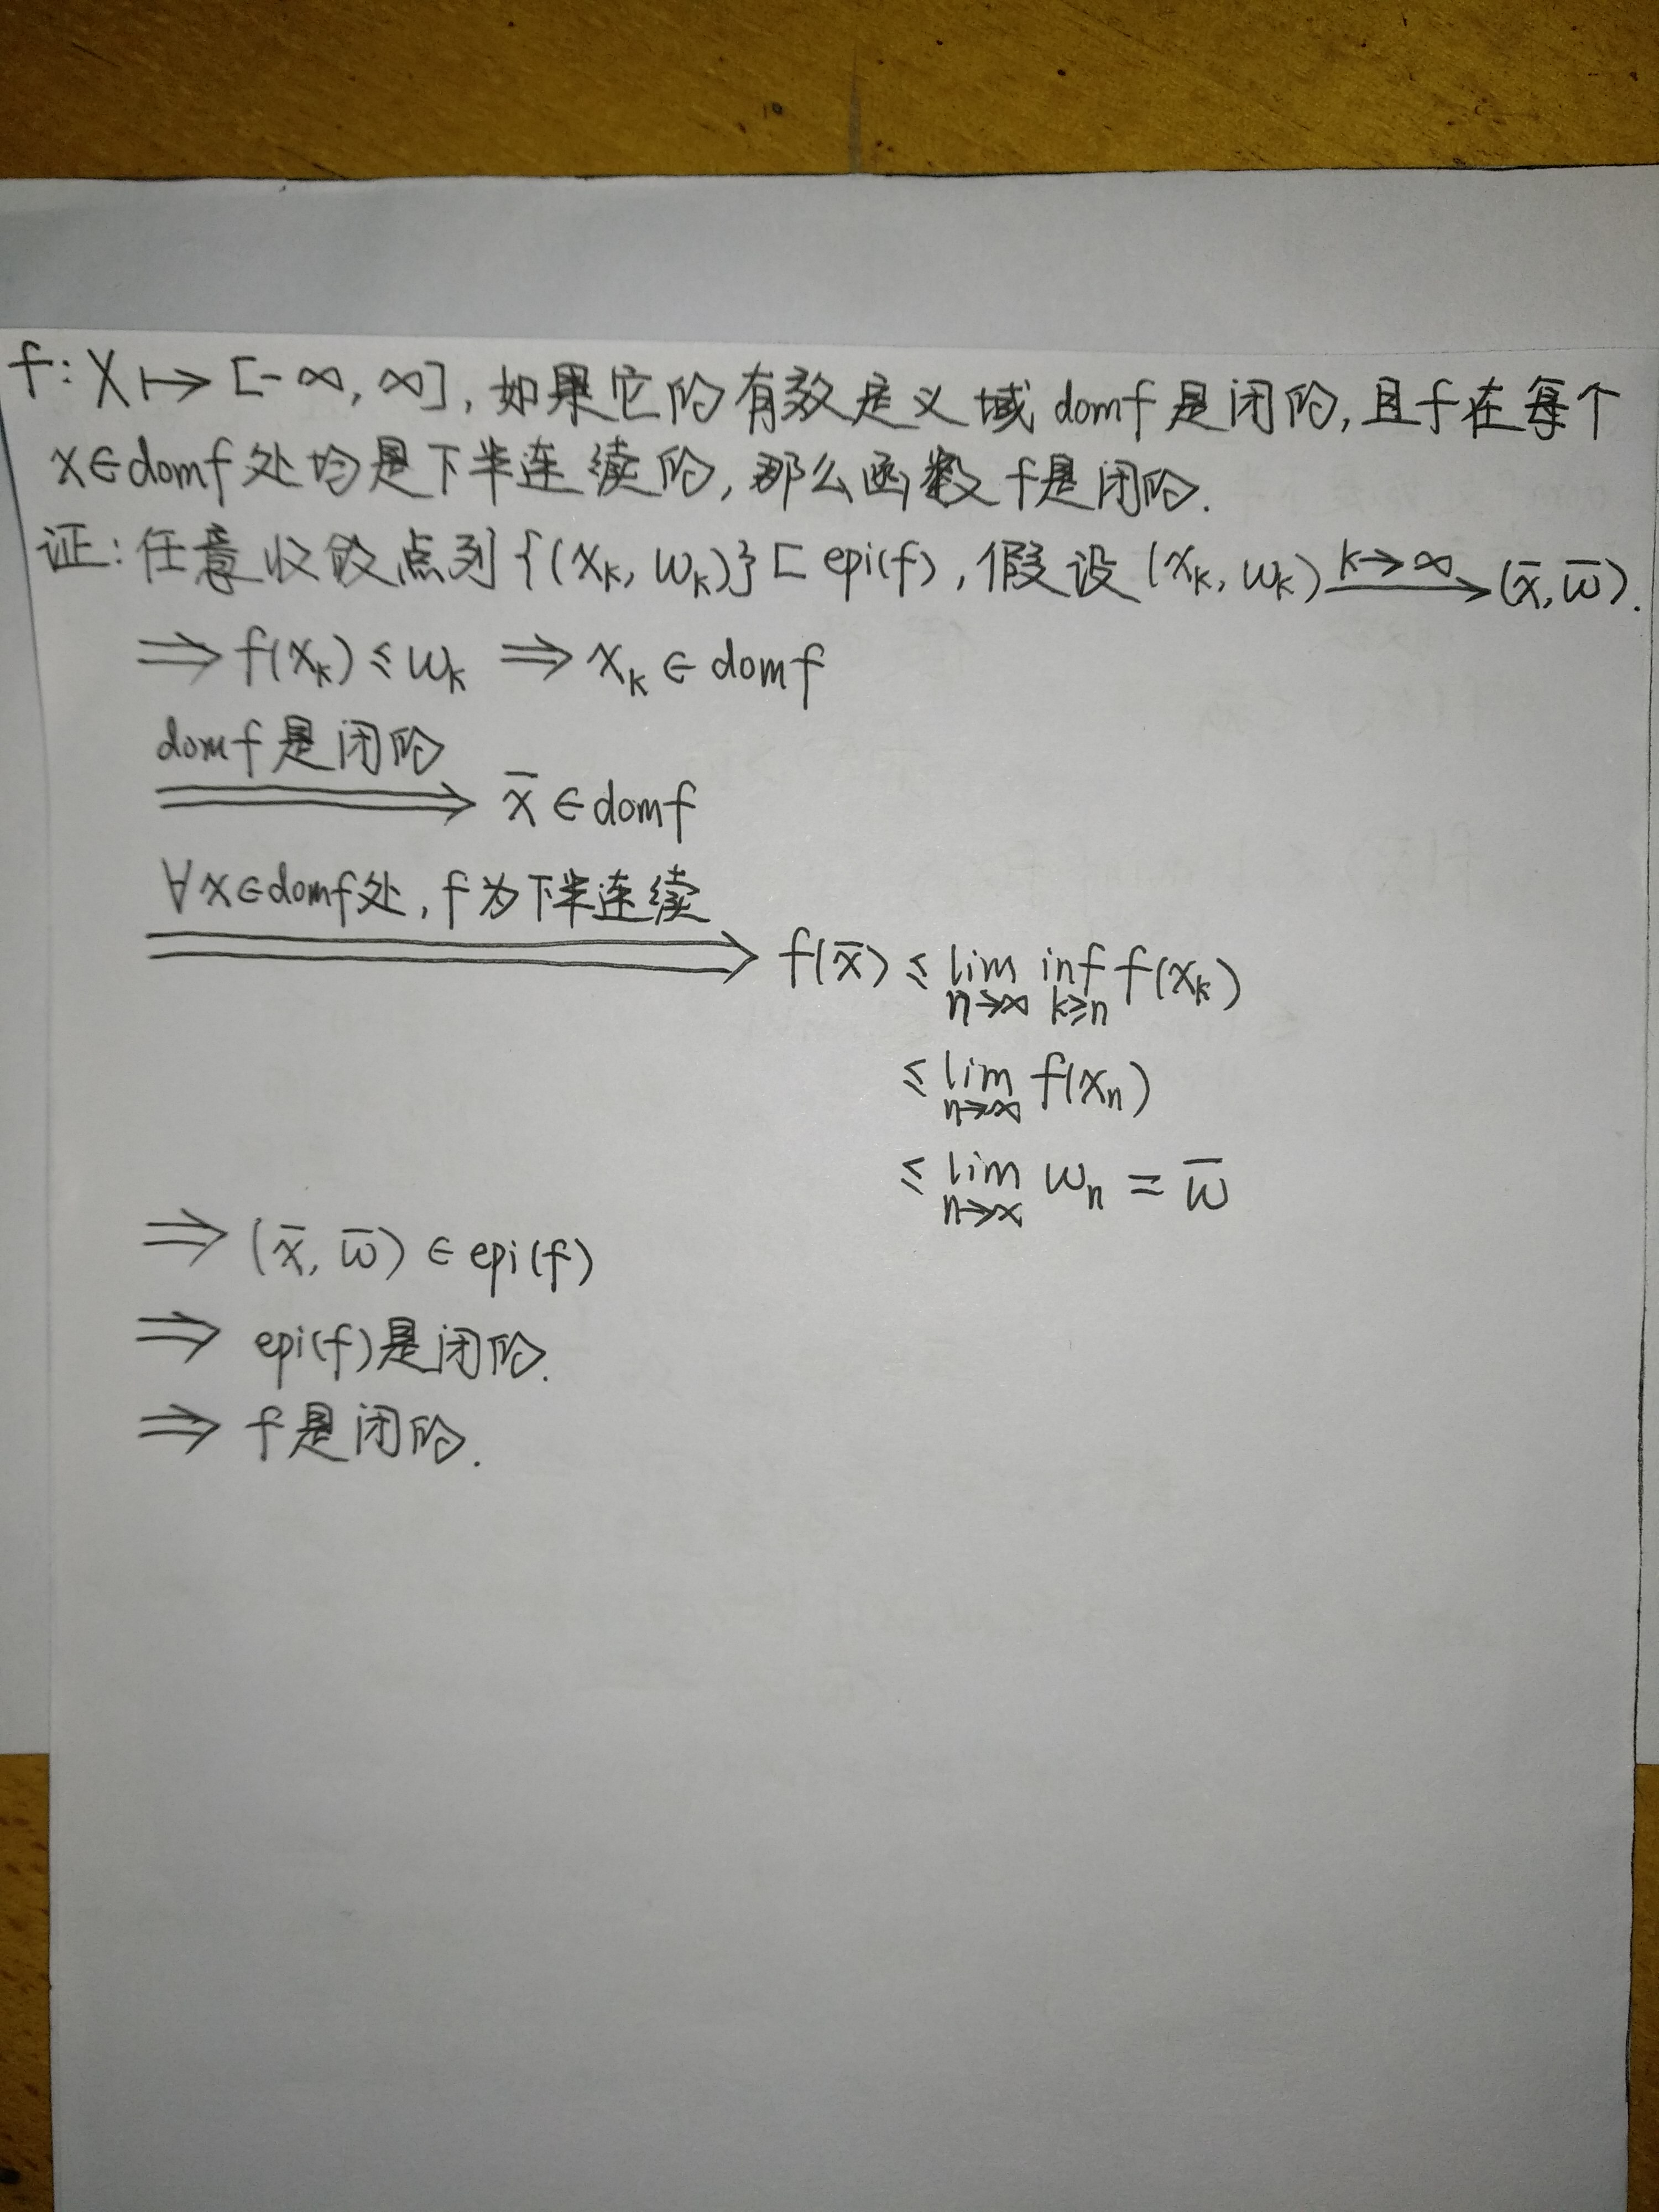 f: X ↦ [-∞, ∞], 如果它的有效定义域 domf 是闭的, 且f在每个
x∈domf 处均是下半连续的, 那么函数 f是闭的.
证: 任意收敛点列 {(x_k, w_k)} ⊏ epi(f), 假设 (x_k, w_k) —k→∞→ (x̄, w̄).
⇒ f(x_k) ≤ w_k ⇒ x_k ∈ domf
domf 是闭的
⇒ x̄ ∈ domf
∀x∈domf处, f为下半连续
⇒ f(x̄) ≤ lim_{n→∞} inf_{k≥n} f(x_k)
≤ lim_{n→∞} f(x_n)
≤ lim_{n→∞} w_n = w̄
⇒ (x̄, w̄) ∈ epi(f)
⇒ epi(f)是闭的.
⇒ f是闭的.